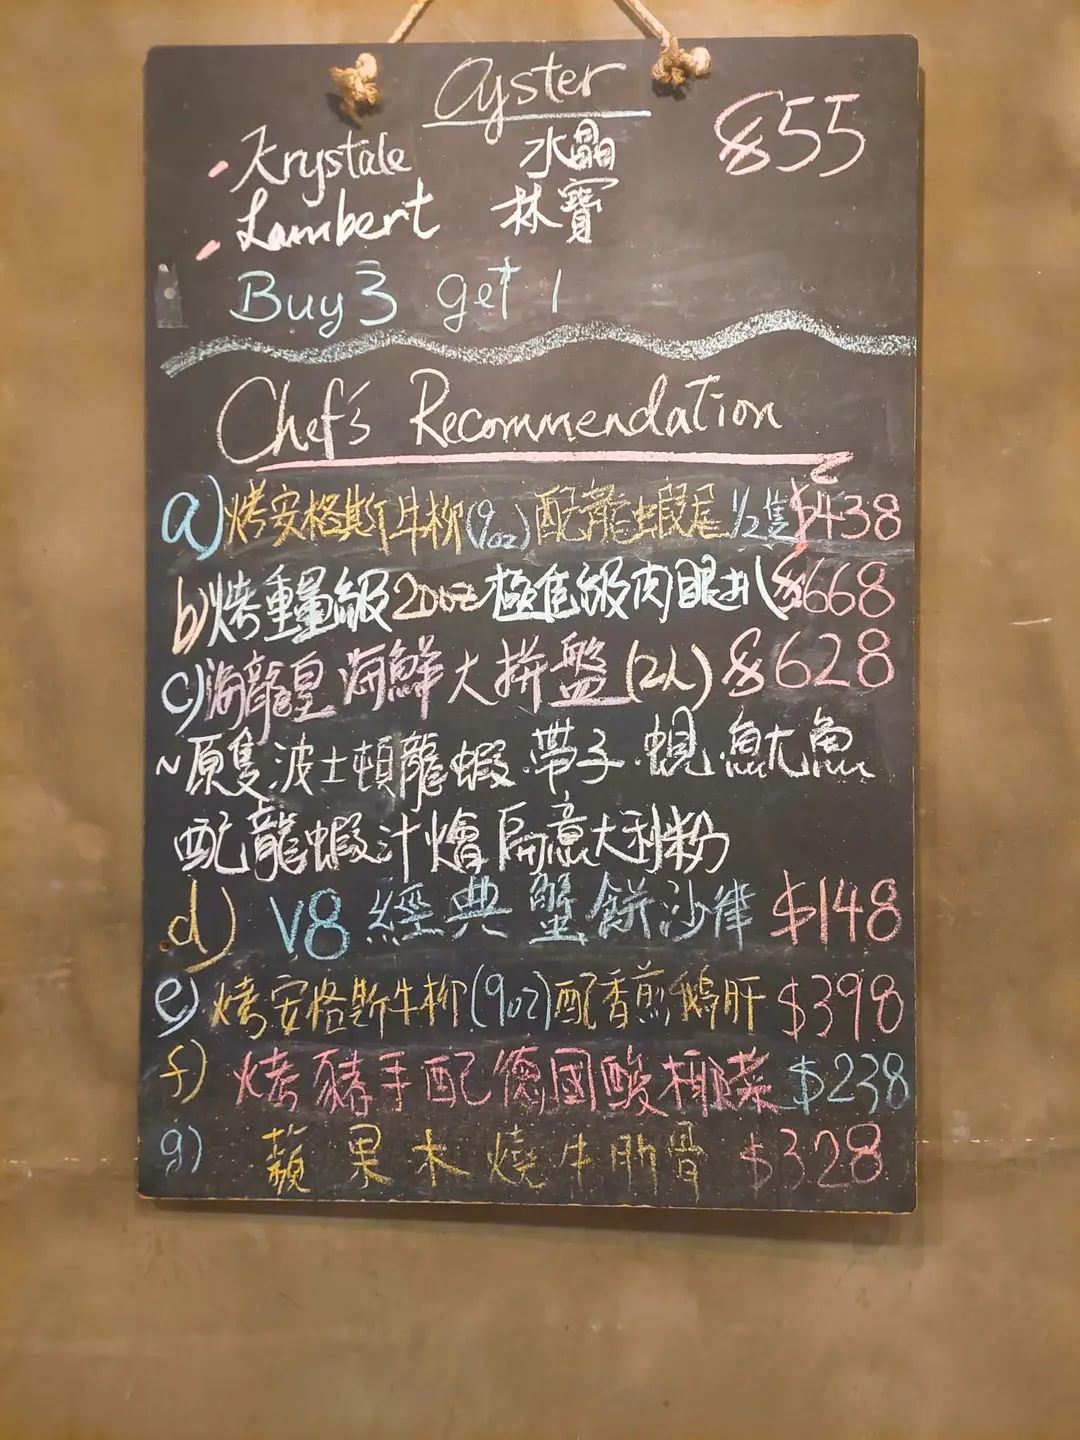 Oyster
Krystale 水晶 $55
Lambert 林寶
Buy 3 get 1
Chef's Recommendation
a) 烤安格斯牛柳(9oz)配龍蝦尾1/2隻 $438
b) 烤重量級20oz極隹級肉眼扒 $668
c) 海龍皇海鮮大拼盤(2人) $628
~原隻波士頓龍蝦.帶子.蜆.魷魚
配龍蝦汁燴扁意大利粉
d) V8 經典蟹餅沙律 $148
e) 烤安格斯牛柳(9oz)配香煎鵝肝 $398
f) 烤豬手配德國酸椰菜 $238
g) 蘋果木燒牛肋骨 $328